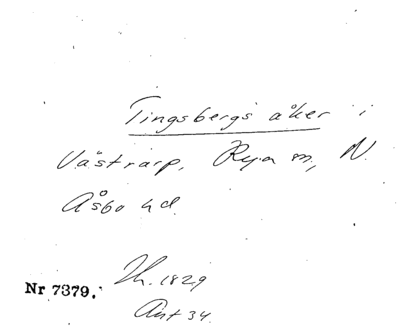 Tingsbergs åker i
Västrarp, Rya sn, N.
Åsbo hd.
Nr 7379.
Th. 1829
Ant 34.